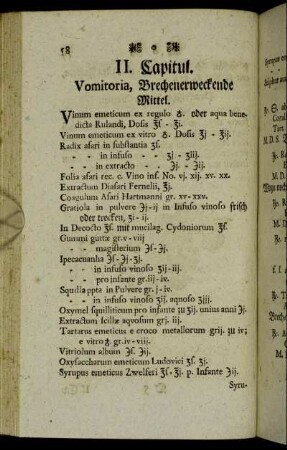 58
II. Capitul.
Vomitoria, Brechenerweckende
Mittel.
Vinum emeticum ex regulo ♁. oder aqua bene-
dicta Rulandi, Dosis ℥ß - ℥j.
Vinum emeticum ex vitro ♁. Dosis ℥j - ℥ij.
Radix asari in substantia ʒß.
- - in infuso - - ʒj - ʒiij.
- - in extracto - - ℈j. - ℈ij.
Folia asari rec. c. Vino inf. No. vj. xij. xv. xx.
Extractum Diasari Fernelii, ʒj.
Coagulum Asari Hartmanni gr. xv-xxv.
Gratiola in pulvere ℈j-ij in Infuso vinoso frisch
oder trocken, ʒi-ij.
In Decocto ℥ß mit mucilag. Cydoniorum ʒß.
Gummi guttæ gr. v-viij
- - magisterium ℈ß-℈j.
Ipecacuanha ℈ß-℈j-ʒj.
- - in infuso vinoso ʒij-iij.
- - pro infante gr. iij-iv.
Squilla ppta in Pulvere gr. j-iv.
- - in infuso vinoso ℥ij, aquoso ℥iij.
Oxymel squilliticum pro infante ʒij. unius anni ʒj.
Extractum scillæ aquosum grj. iij.
Tartarus emeticus e croco metallorum grij. zu iv;
e vitro ♁. gr. iv-viij.
Vitriolum album ℈ß. ℈ij.
Oxysaccharum emeticum Ludovici ℥ß. ℥j.
Syrupus emeticus Zwelferi ℥ß-℥j. p. Infante ℈ij.
Syru-